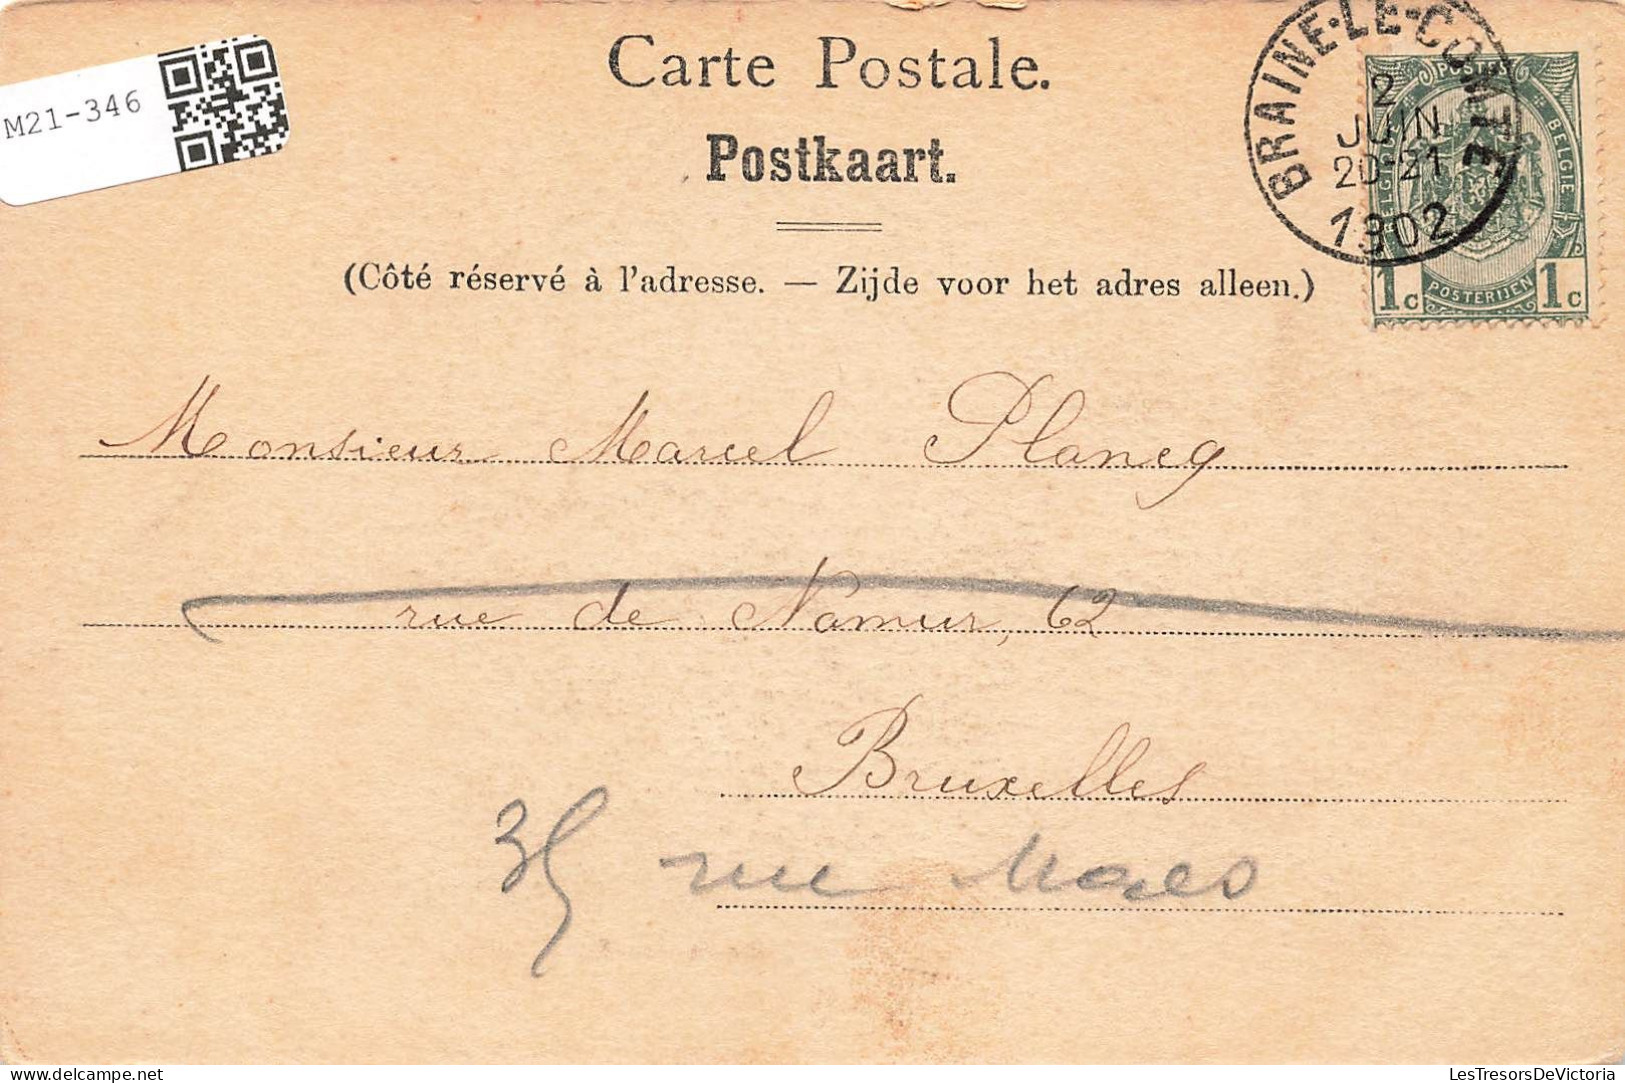 M21-346
Carte Postale.
Postkaart.
(Côté réservé à l'adresse. — Zijde voor het adres alleen.)
BRAINE-LE-COMTE
2
JUIN
20-21
1902
POSTES
BELGIE
1c POSTERIJEN 1c
Monsieur Marcel Plancq
rue de Namur, 62
Bruxelles
35 rue Maes
LesTresorsDeVictoria